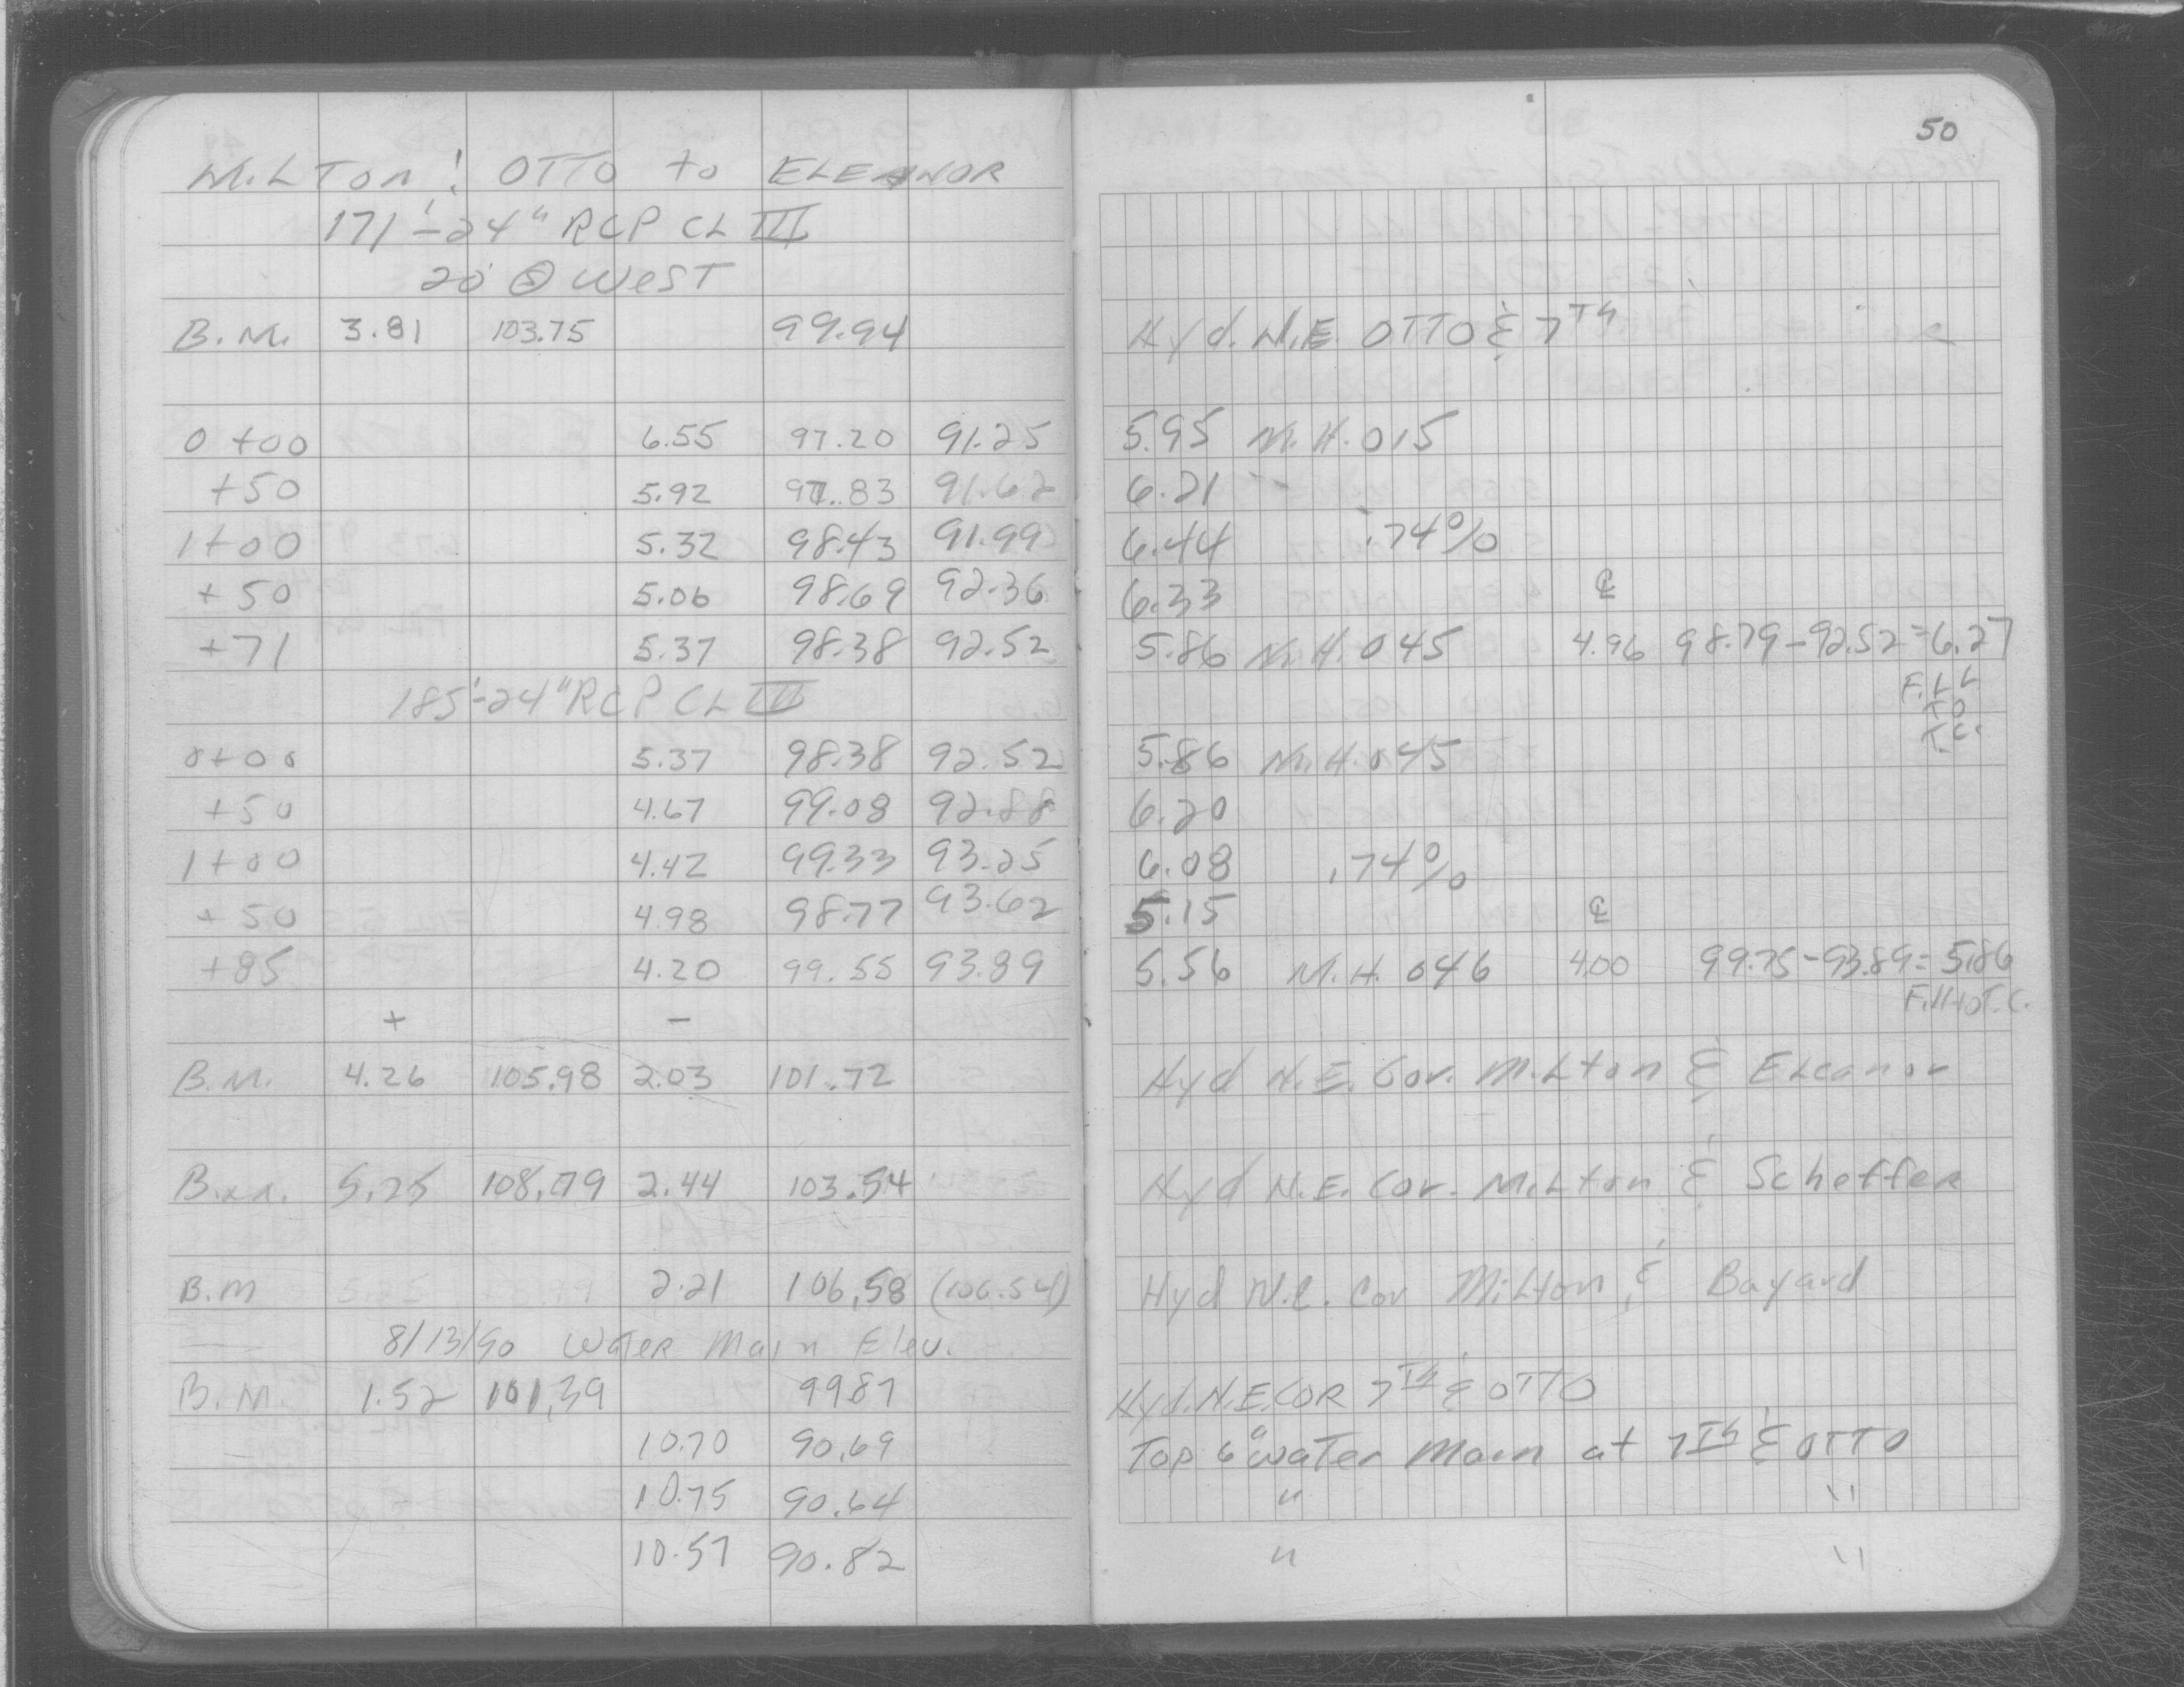 50
MILTON: OTTO to ELEANOR
171'-24" RCP CL III
20' Ⓢ WEST
B.M. 3.81 103.75 99.94 Hyd. N.E. OTTO & 7TH
0+00 6.55 97.20 91.25 5.95 M.H. 015
+50 5.92 97.83 91.62 6.21
1+00 5.32 98.43 91.99 6.44 .74%
+50 5.06 98.69 92.36 6.33 ℄
+71 5.37 98.38 92.52 5.86 M.H. 045 4.96 98.79-92.52=6.27
Fill
to
T.C.
185'-24" RCP CL III
0+00 5.37 98.38 92.52 5.86 M.H. 045
+50 4.67 99.08 92.88 6.20
1+00 4.42 99.33 93.25 6.08 .74%
+50 4.98 98.77 93.62 5.15 ℄
+85 4.20 99.55 93.89 5.56 M.H. 046 4.00 99.75-93.89=5.86
Fill to T.C.
+ -
B.M. 4.26 105.98 2.03 101.72 Hyd N.E. Cor. Milton & Eleanor
B.M. 5.25 108.79 2.44 103.54 Hyd N.E. Cor. Milton & Scheffer
B.M 2.21 106.58 (106.54) Hyd N.E. Cor Milton & Bayard
8/13/90 Water Main Elev.
B.M. 1.52 101.39 99.87 Hyd. N.E. COR 7TH & OTTO
10.70 90.69 Top 6" Water Main at 7TH & OTTO
10.75 90.64 " "
10.57 90.82 " "